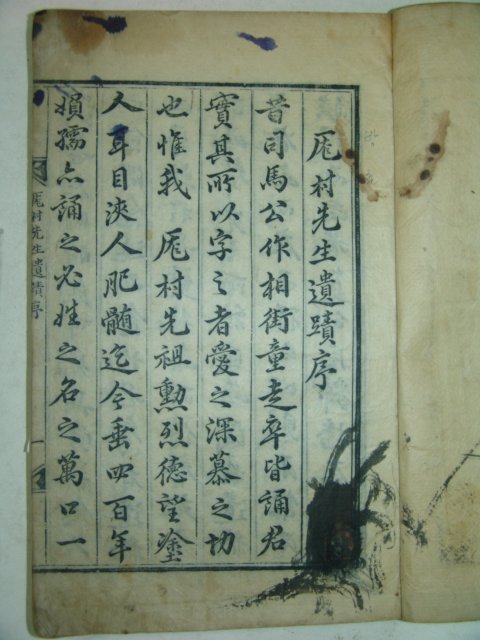 厖村先生遺蹟序
昔司馬公作相街童走卒皆誦君
實其所以字之者愛之深慕之切
也惟我 厖村先祖勳烈德望塗
人耳目浹人肌髓迄今垂四百年
媍孺亦誦之必姓之名之萬口一
厖村先生遺蹟序 一